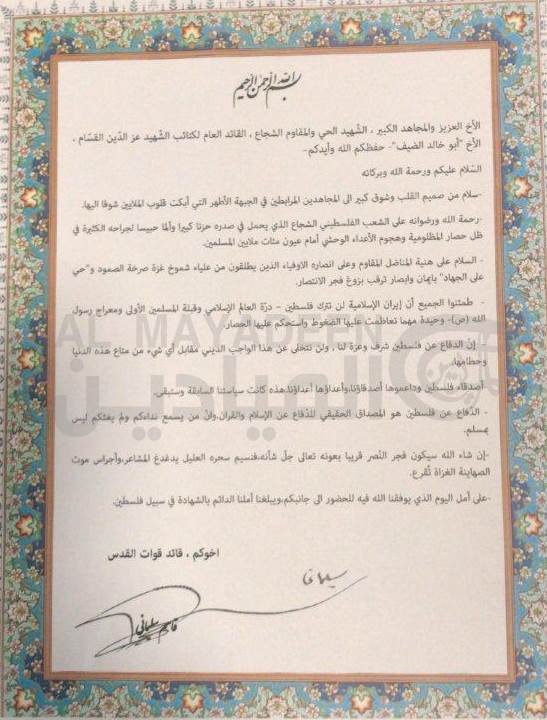 بسم الله الرحمن الرحيم
الأخ العزيز والمجاهد الكبير ، الشّهيد الحي والمقاوم الشجاع ، القائد العام لكتائب الشّهيد عز الدّين القسّام ،
الأخ "أبو خالد الضيف"- حفظكم الله وأيدكم-
السّلام عليكم ورحمة الله وبركاته
-سلام من صميم القلب وشوق كبير الى المجاهدين المرابطين في الجبهة الأطهر التي أبكت قلوب الملايين شوقا اليها.
-رحمة الله ورضوانه على الشعب الفلسطيني الشجاع الذي يحمل في صدره حزنا كبيرا وألما حبيسا لجراحه الكثيرة في
ظل حصار المظلومية وهجوم الأعداء الوحشي أمام عيون مئات ملايين المسلمين.
- السلام على هنية المناضل المقاوم وعلى انصاره الاوفياء الذين يطلقون من علياء شموخ غزة صرخة الصمود و"حي
على الجهاد" بإيمان وابصار ترقب بزوغ فجر الانتصار.
- طمئنوا الجميع أن إيران الإسلامية لن تترك فلسطين – درّة العالم الإسلامي وقبلة المسلمين الأولى ومعراج رسول
الله (ص)- وحيدة مهما تعاظمت عليها الضغوط واستحكم عليها الحصار.
- إن الدفاع عن فلسطين شرف وعزة لنا ، ولن نتخلى عن هذا الواجب الديني مقابل أي شيء من متاع هذه الدنيا
وحطامها.
أصدقاء فلسطين وداعموها أصدقاؤنا،وأعداؤها أعداؤنا،هذه كانت سياستنا السابقة وستبقى.
- الدّفاع عن فلسطين هو المصداق الحقيقي للدّفاع عن الإسلام والقران،وانّ من يسمع نداءكم ولم يغثكم ليس
بمسلم.
-إن شاء الله سيكون فجر النّصر قريبا بعونه تعالى جلّ شأنه،فنسيم سحره العليل يدغدغ المشاعر،وأجراس موت
الصهاينة الغزاة تُقرع.
-على أمل اليوم الذي يوفقنا الله فيه للحضور الى جانبكم،ويبلغنا أملنا الدائم بالشهادة في سبيل فلسطين.
اخوكم ، قائد قوات القدس
قاسم سليماني
AL MAYADEEN
الميادين